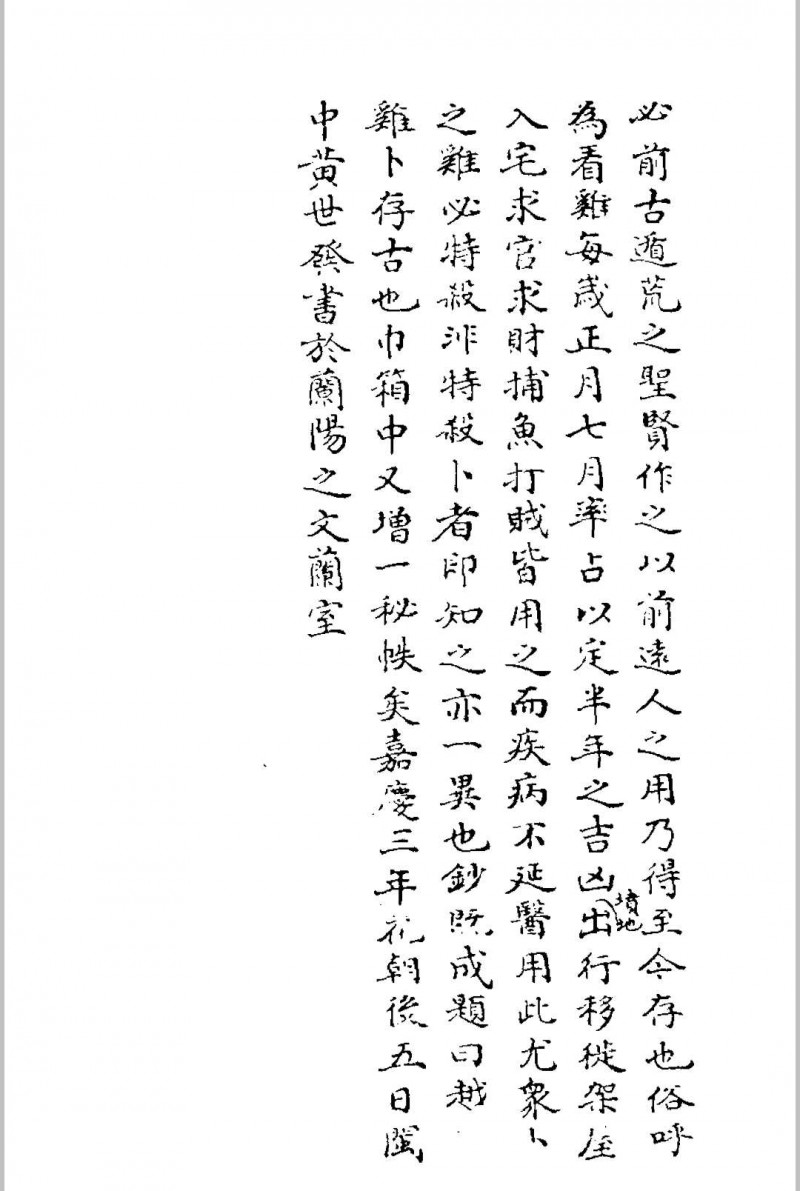 必前古遁荒之聖賢作之以前逺人之用乃得至今存也俗呼
為看雞每歲正月七月率占以定半年之吉凶墳地出行移徙架屋
入宅求官求財捕魚打賊皆用之而疾病不延醫用此尤衆卜
之雞必特殺非特殺卜者即知之亦一異也鈔既成題曰越
雞卜存古也巾箱中又增一秘帙矣嘉慶三年花朝後五日閩
中黃世發書於蘭陽之文蘭室